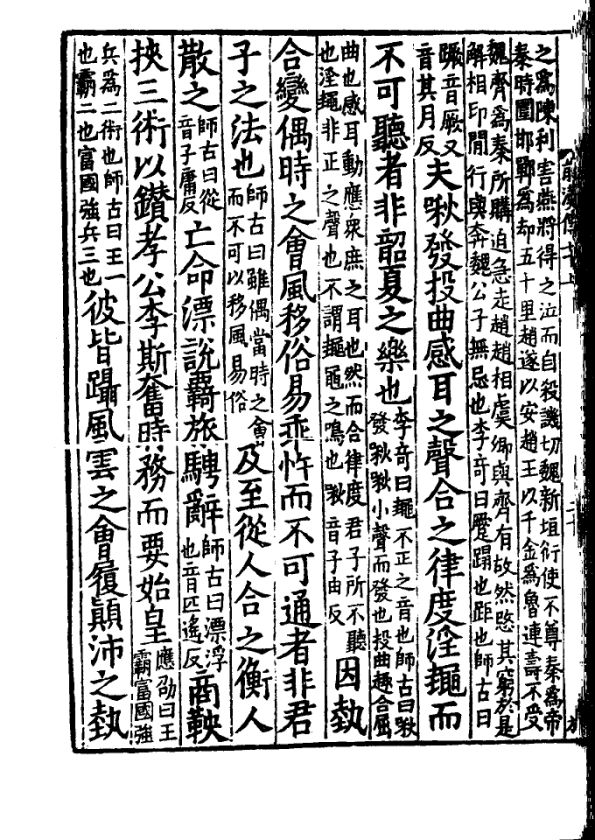 之爲陳利害燕將得之泣而自殺譏切魏新垣衍使不尊秦爲帝
秦時圍邯鄲爲却五十里趙遂以安趙王以千金爲魯連壽不受
魏齊爲秦所購迫急走趙趙相虞卿與齊有故然愍其窮於是
解相印閒行與奔魏公子無忌也李奇曰蹷蹋也距也師古曰
蹶音厥又
音其月反
夫啾發投曲感耳之聲合之律度淫䵷而
不可聽者非韶夏之樂也
李奇曰䵷不正之音也師古曰啾
發啾啾小聲而發也投曲趣合屬
曲也感耳動應衆庶之耳也然而合律度君子所不聽
也淫䵷非正之聲也不謂䵷黽之鳴也啾音子由反
因埶
合變偶時之會風移俗易乖忤而不可通者非君
子之法也
師古曰雖偶當時之會
而不可以移風易俗
及至從人合之衡人
散之
師古曰從
音子庸反
亡命漂說羇旅騁辭
師古曰漂浮
也音匹遙反
商鞅
挾三術以鑽孝公李斯奮時務而要始皇
應劭曰王
霸富國強
兵爲二術也師古曰王一
也霸二也富國強兵三也
彼皆躡風雲之會履顛沛之埶